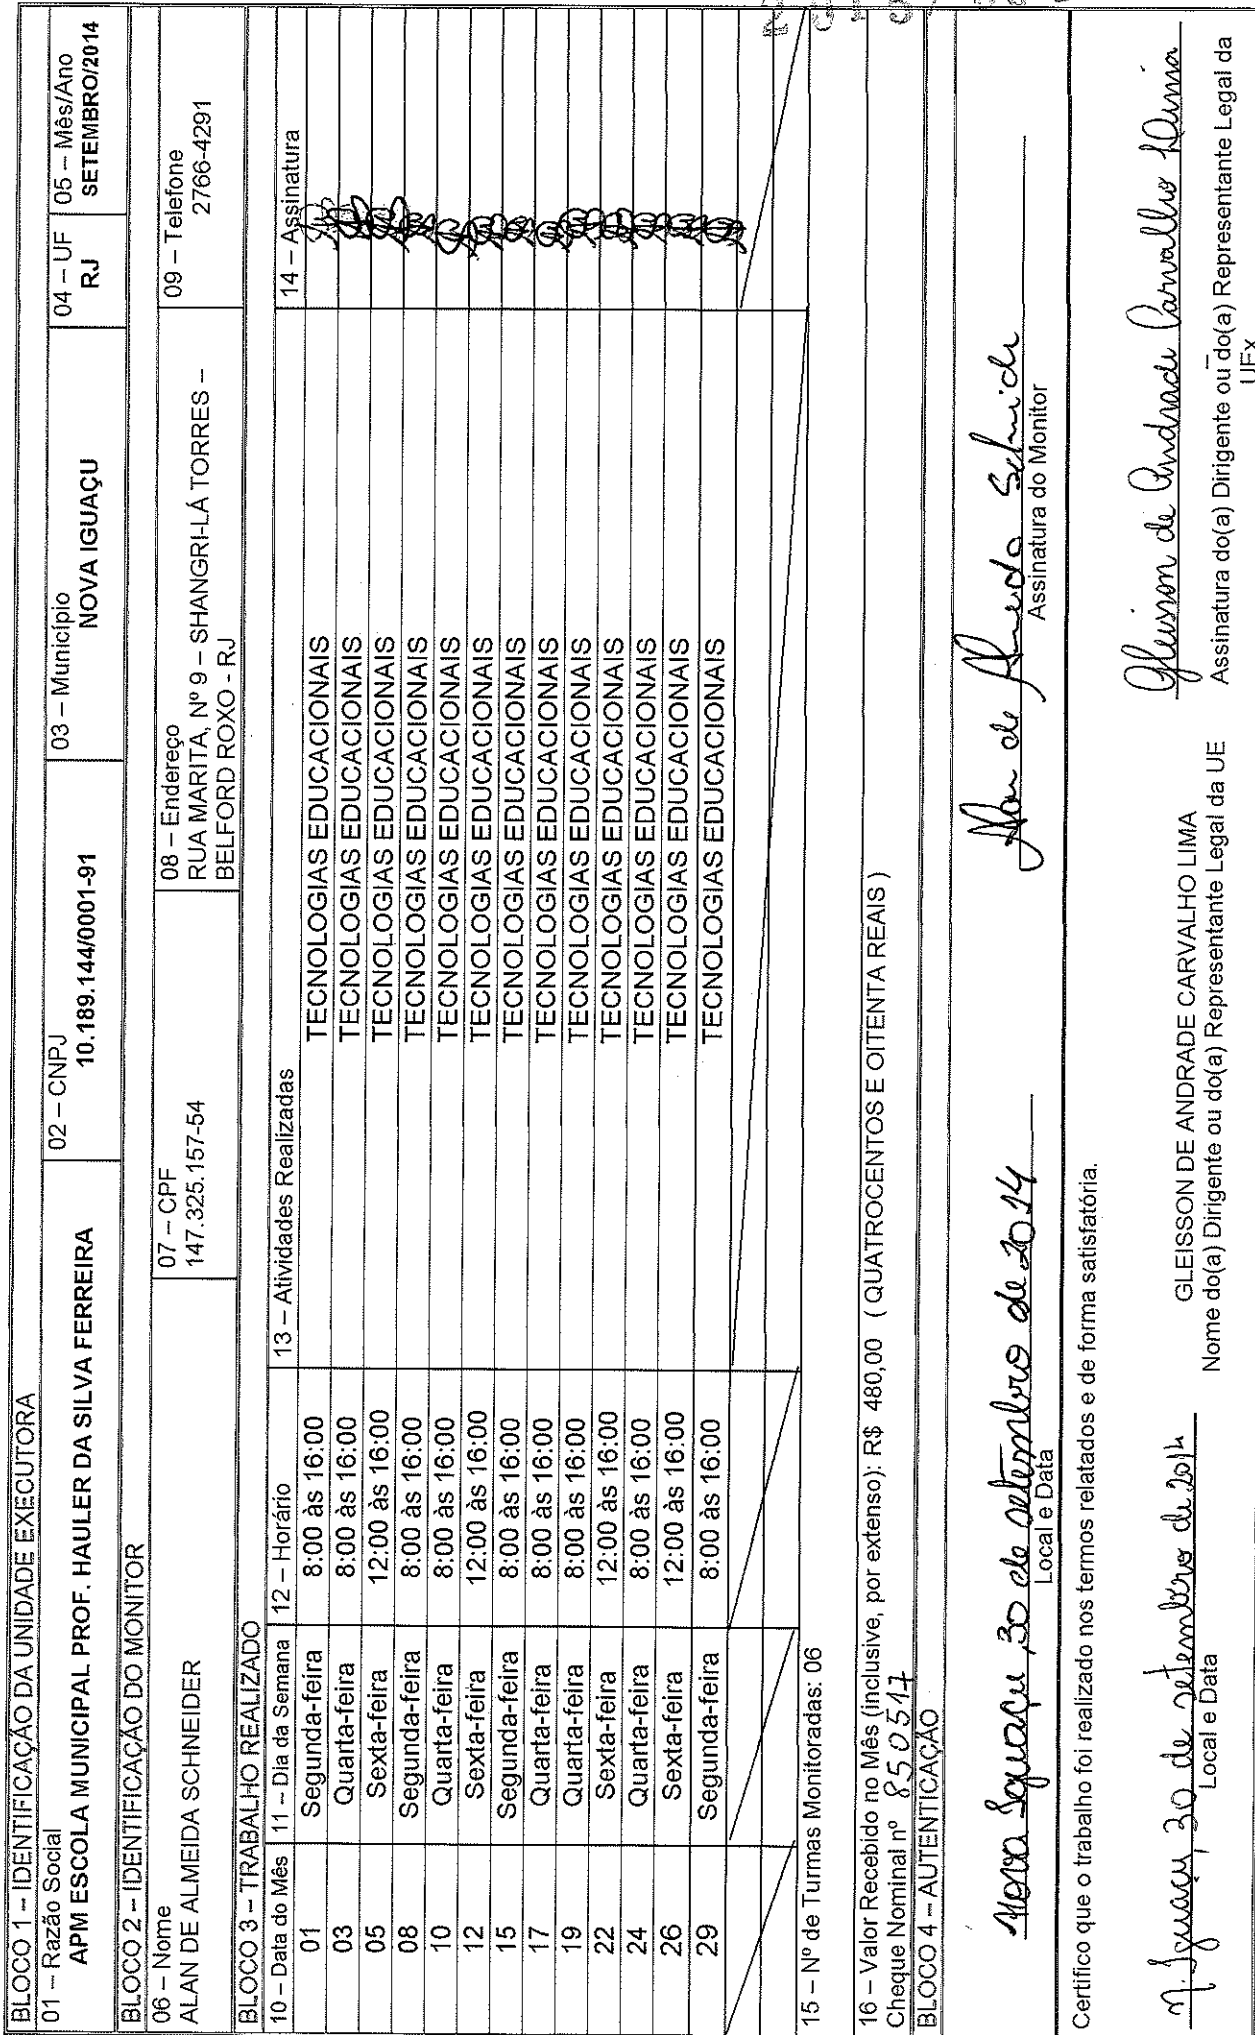 BLOCO 1 – IDENTIFICAÇÃO DA UNIDADE EXECUTORA
01 – Razão Social 02 – CNPJ 03 – Município 04 – UF 05 – Mês/Ano
APM ESCOLA MUNICIPAL PROF. HAULER DA SILVA FERREIRA 10.189.144/0001-91 NOVA IGUAÇU RJ SETEMBRO/2014
BLOCO 2 – IDENTIFICAÇÃO DO MONITOR
06 – Nome 07 – CPF 08 – Endereço 09 – Telefone
ALAN DE ALMEIDA SCHNEIDER 147.325.157-54 RUA MARITA, Nº 9 – SHANGRI-LÁ TORRES – 2766-4291
BELFORD ROXO - RJ
BLOCO 3 – TRABALHO REALIZADO
10 – Data do Mês 11 – Dia da Semana 12 – Horário 13 – Atividades Realizadas 14 – Assinatura
01 Segunda-feira 8:00 às 16:00 TECNOLOGIAS EDUCACIONAIS
03 Quarta-feira 8:00 às 16:00 TECNOLOGIAS EDUCACIONAIS
05 Sexta-feira 12:00 às 16:00 TECNOLOGIAS EDUCACIONAIS
08 Segunda-feira 8:00 às 16:00 TECNOLOGIAS EDUCACIONAIS
10 Quarta-feira 8:00 às 16:00 TECNOLOGIAS EDUCACIONAIS
12 Sexta-feira 12:00 às 16:00 TECNOLOGIAS EDUCACIONAIS
15 Segunda-feira 8:00 às 16:00 TECNOLOGIAS EDUCACIONAIS
17 Quarta-feira 8:00 às 16:00 TECNOLOGIAS EDUCACIONAIS
19 Quarta-feira 8:00 às 16:00 TECNOLOGIAS EDUCACIONAIS
22 Sexta-feira 12:00 às 16:00 TECNOLOGIAS EDUCACIONAIS
24 Quarta-feira 8:00 às 16:00 TECNOLOGIAS EDUCACIONAIS
26 Sexta-feira 12:00 às 16:00 TECNOLOGIAS EDUCACIONAIS
29 Segunda-feira 8:00 às 16:00 TECNOLOGIAS EDUCACIONAIS
15 – Nº de Turmas Monitoradas: 06
16 – Valor Recebido no Mês (inclusive, por extenso): R$ 480,00 ( QUATROCENTOS E OITENTA REAIS )
Cheque Nominal nº 850517
BLOCO 4 – AUTENTICAÇÃO
Nova Iguaçu, 30 de setembro de 2014 Alan de Almeida Schneider
Local e Data Assinatura do Monitor
Certifico que o trabalho foi realizado nos termos relatados e de forma satisfatória.
N. Iguaçu, 30 de setembro de 2014 GLEISSON DE ANDRADE CARVALHO LIMA Gleisson de Andrade Carvalho Lima
Local e Data Nome do(a) Dirigente ou do(a) Representante Legal da UE Assinatura do(a) Dirigente ou do(a) Representante Legal da
UEx